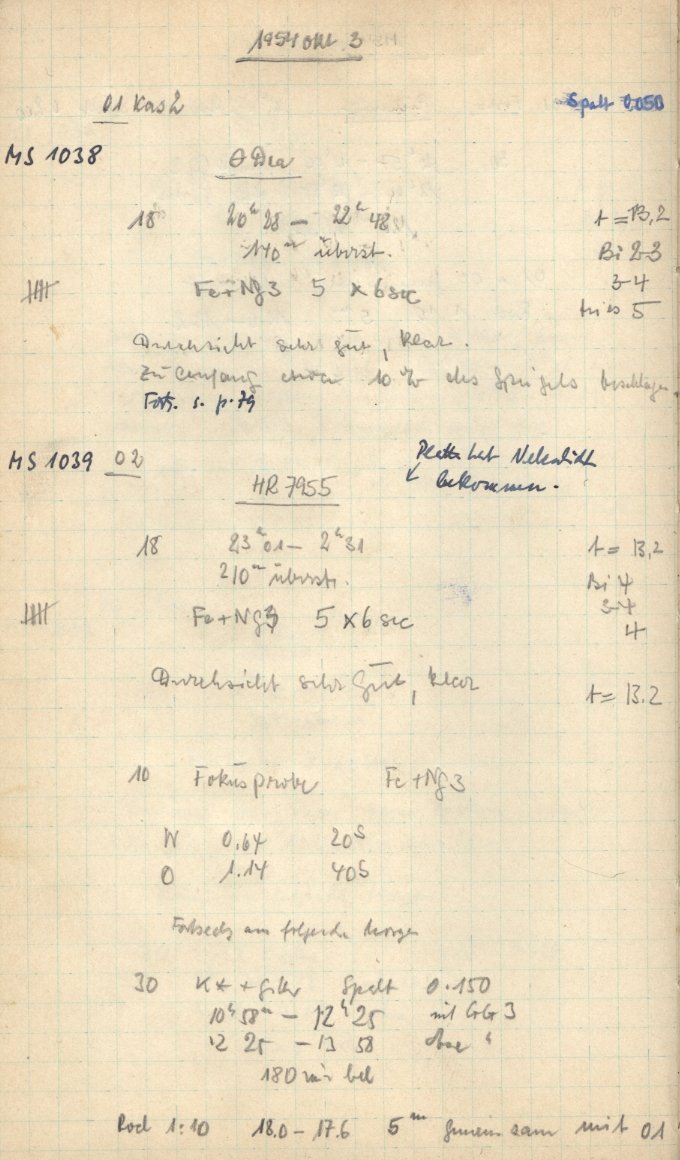 1954 Okt 3
01 Kas 2 Spalt 0.050
MS 1038 θ Dra
18 20h 28 — 22h 48 t = 13,2
140m überst. Bi 2-3
Fe + Ng 3 5 x 6 sec 3-4
5
Durchsicht sehr gut, klar.
Zu Anfang etwa 10 % des Spiegels beschlagen
Forts. s. p. 79
MS 1039 02 Platte hat Nebenlicht
bekommen.
HR 7955
18 23h 01 — 2h 31 t = 13,2
210m überst. Bi 4
3-4
Fe + Ng 3 5 x 6 sec 4
Durchsicht sehr Gut, klar t = 13.2
10 Fokusprobe Fe + Ng 3
W 0.64 20s
O 1.14 40s
am folgenden Morgen
30 K * + Spalt 0.150
10h 58m — 12h 25 mit 3
12 25 — 13 58 ohne "
180 min bel
1:10 18.0 — 17.6 5m gemeinsam mit 01